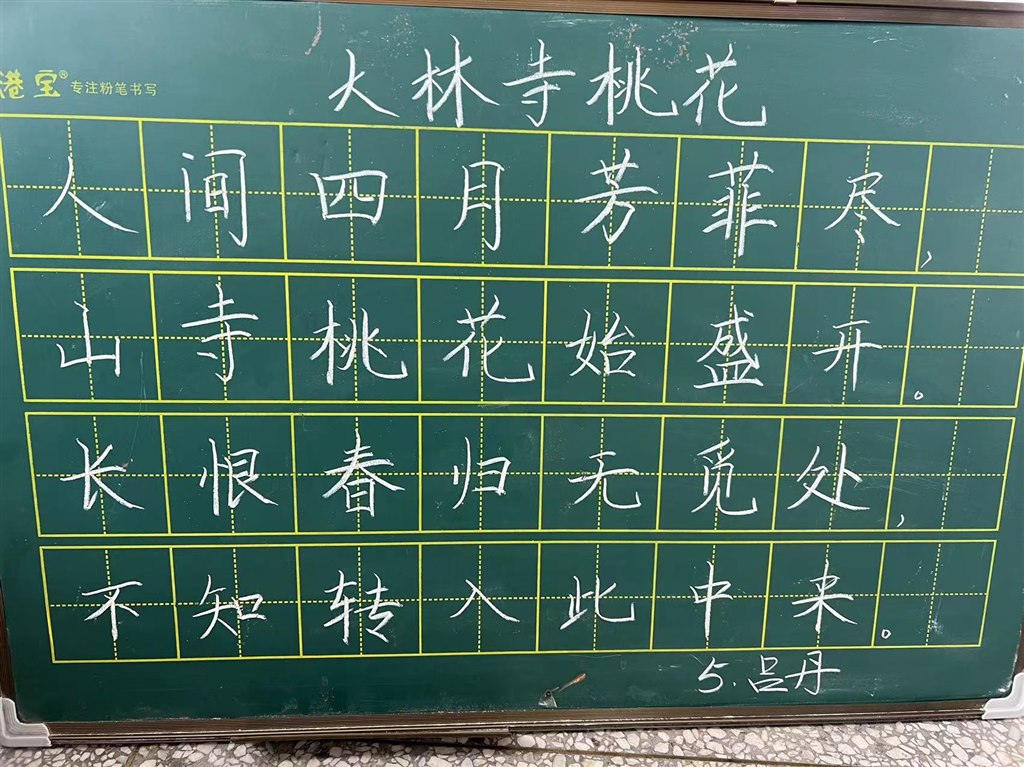 大林寺桃花
港宝® 专注粉笔书写
人间四月芳菲尽,
山寺桃花始盛开。
长恨春归无觅处,
不知转入此中来。
5.吕丹